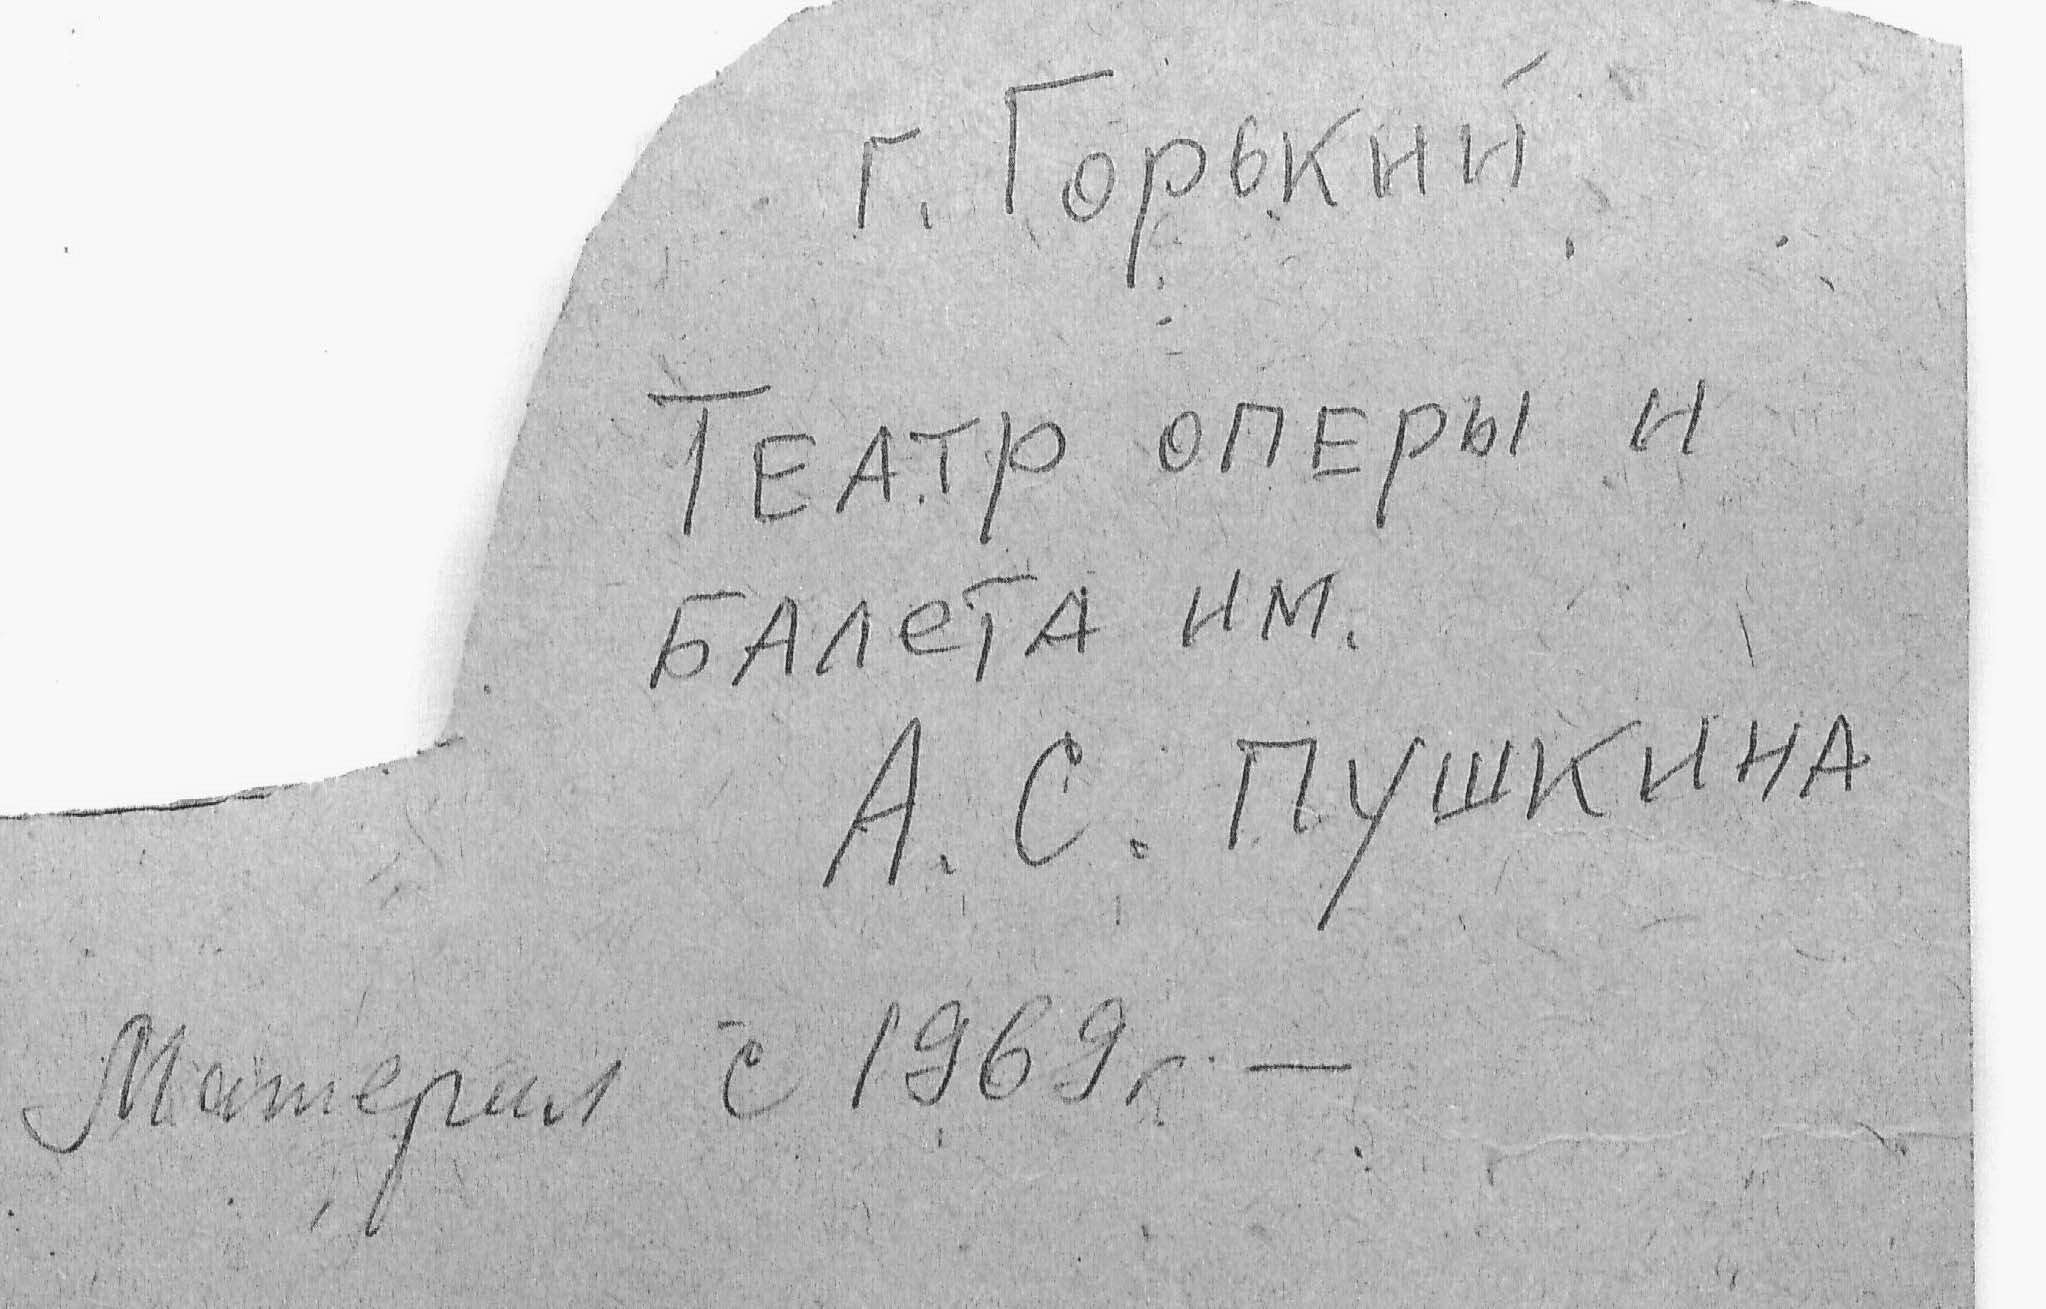 г. Горький
Театр оперы и
балета им.
А. С. Пушкина
Материал с 1969 г. —